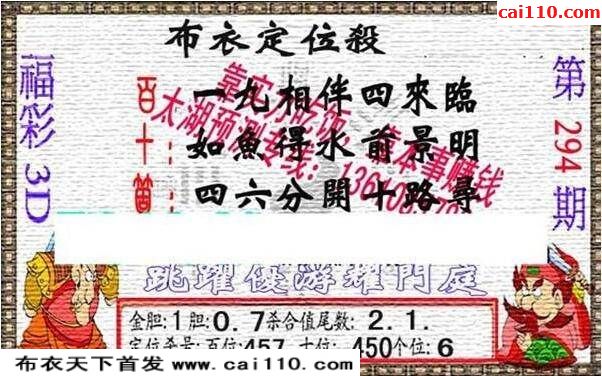 cai110.com
布衣定位殺
福彩3D
第294期
百:
十:
一九相伴四來臨
如魚得水前景明
四六分開十路尋
太湖预测专线:
跳躍優游耀門庭
金胆:1胆:0.7杀合值尾数:2.1.
定位杀号:百位457 十位:450个位:6
布衣天下首发 www.cai110.com